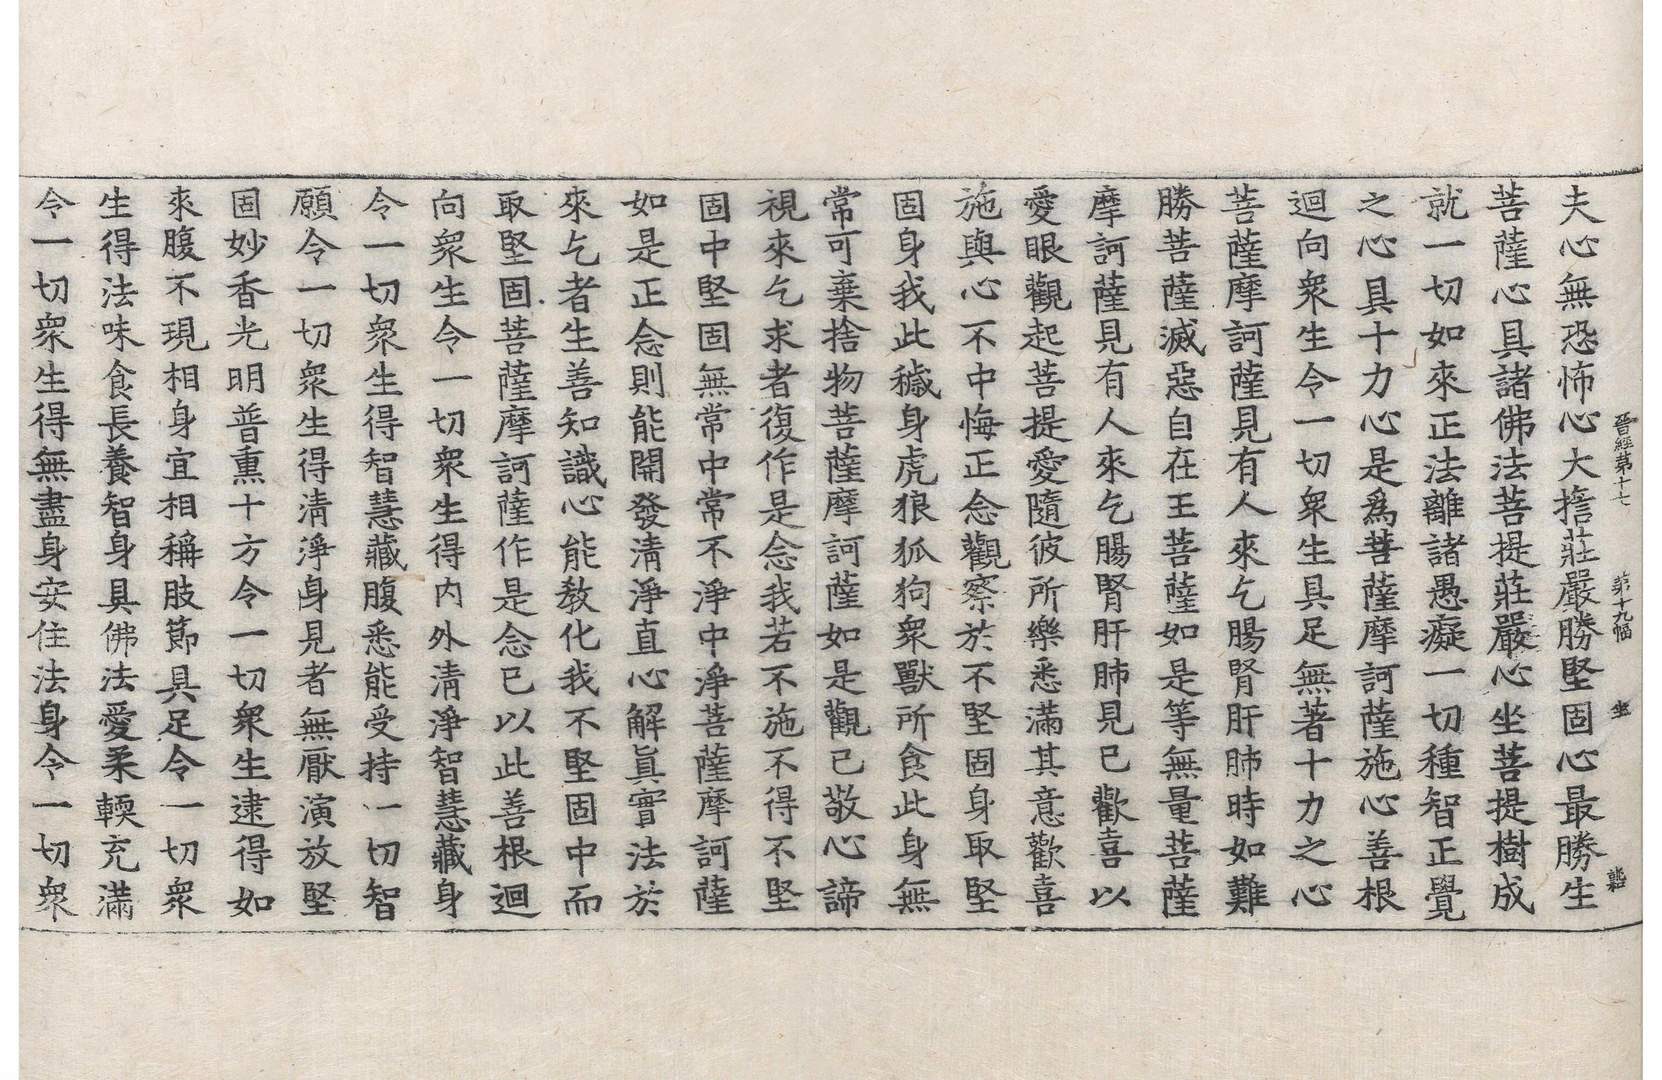 晉經第十七 第十九幅 坐
夫心無恐怖心大誓莊嚴勝堅固心最勝生
菩薩心具諸佛法菩提莊嚴心坐菩提樹成
就一切如來正法離諸愚癡一切種智正覺
之心具十力心是爲菩薩摩訶薩施心善根
迴向衆生令一切衆生具足無著十力之心
菩薩摩訶薩見有人來乞腸腎肝肺時如難
勝菩薩滅惡自在王菩薩如是等無量菩薩
摩訶薩見有人來乞腸腎肝肺見已歡喜以
愛眼觀起菩提愛隨彼所樂悉滿其意歡喜
施與心不中悔正念觀察於不堅固身取堅
固身我此穢身虎狼狐狗衆獸所食此身無
常可棄捨物菩薩摩訶薩如是觀已敬心諦
視來乞求者復作是念我若不施不得不堅
固中堅固無常中常不淨中淨菩薩摩訶薩
如是正念則能開發淸淨直心解眞實法於
來乞者生善知識心能敎化我不堅固中而
取堅固菩薩摩訶薩作是念已以此善根迴
向衆生令一切衆生得内外淸淨智慧藏身
令一切衆生得智慧藏腹悉能受持一切智
願令一切衆生得淸淨身見者無厭演放堅
固妙香光明普熏十方令一切衆生逮得如
來腹不現相身宜相稱肢節具足令一切衆
生得法味食長養智身具佛法愛柔輭充滿
令一切衆生得無盡身安住法身令一切衆